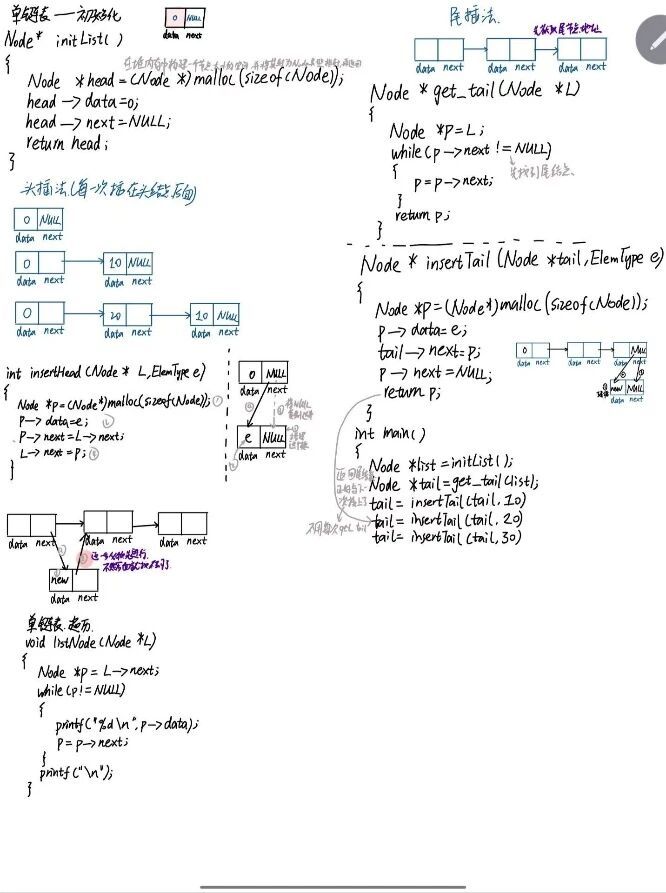 单链表—初始化
0 NULL
data next
Node* initList()
{
Node *head=(Node*)malloc(sizeof(Node));
head→data=0;
head→next=NULL;
return head;
}
头插法(每一次插在头结点后面)
0 NULL
data next
0 10 NULL
data next data next
0 20 10 NULL
data next data next data next
int insertHead(Node* L,ElemType e)
{
Node *p=(Node*)malloc(sizeof(Node)); ①
p→data=e; ②
p→next=L→next;
L→next=p; ④
}
0 NULL
data next
e NULL
data next
data next data next data next
new
data next
单链表 遍历
void listNode(Node *L)
{
Node *p=L→next;
while(p!=NULL)
{
printf("%d\n",p→data);
p=p→next;
}
printf("\n");
}
尾插法.
先获取尾节点地址
data next data next data next
Node * get_tail(Node *L)
{
Node *p=L;
while(p→next !=NULL)
先找到尾结点
{
p=p→next;
}
return p;
}
Node * insertTail(Node *tail,ElemType e)
{
Node *p=(Node*)malloc(sizeof(Node));
p→data=e;
tail→next=p;
p→next=NULL;
return p;
}
0 NULL
data next data next data next
new NULL
data next
int main()
{
Node *list=initList();
Node *tail=get_tail(list);
tail= insertTail(tail,10)
tail= insertTail(tail,20)
tail= insertTail(tail,30)